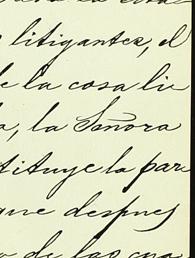 litigantes, el
de la cosa li
a, la Señora
tituye la par
que despues
o de las cua